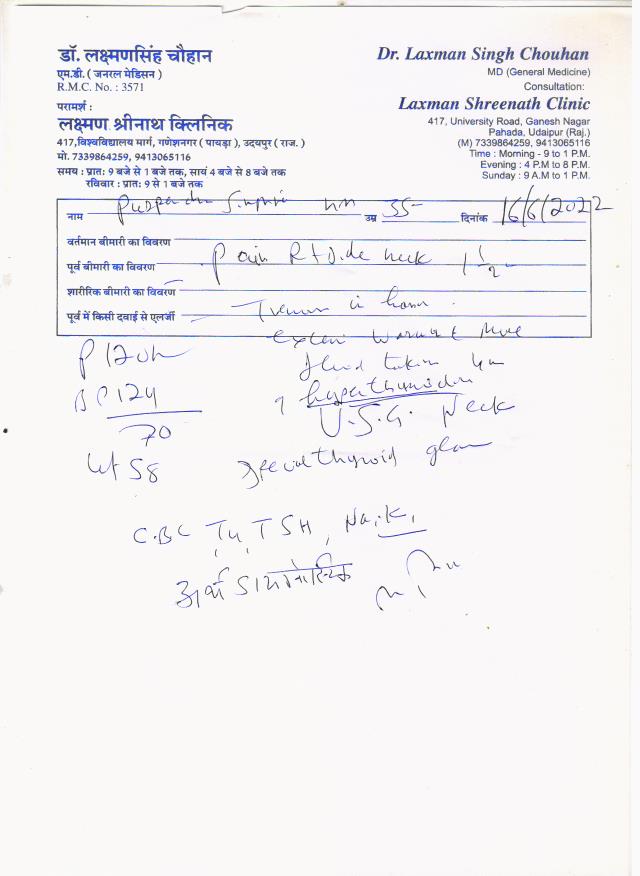 डॉ. लक्ष्मणसिंह चौहान
एम.डी. ( जनरल मेडिसन )
R.M.C. No. : 3571
परामर्श :
लक्ष्मण श्रीनाथ क्लिनिक
417,विश्वविद्यालय मार्ग, गणेशनगर ( पायड़ा ), उदयपुर ( राज. )
मो. 7339864259, 9413065116
समय : प्रात: 9 बजे से 1 बजे तक, सायं 4 बजे से 8 बजे तक
रविवार : प्रात: 9 से 1 बजे तक
Dr. Laxman Singh Chouhan
MD (General Medicine)
Consultation:
Laxman Shreenath Clinic
417, University Road, Ganesh Nagar
Pahada, Udaipur (Raj.)
(M) 7339864259, 9413065116
Time : Morning - 9 to 1 P.M.
Evening : 4 P.M to 8 P.M.
Sunday : 9 A.M to 1 P.M.
नाम उम्र 35 दिनांक 16/6/2022
वर्तमान बीमारी का विवरण
पूर्व बीमारी का विवरण Pain Rt side neck 1 1/2
शारीरिक बीमारी का विवरण
पूर्व में किसी दवाई से एलर्जी
P 120
BP 124
70
Wt 58
U.S.G. Neck
Special thyroid
CBC T4, TSH, Na, K,
अर्थ डायग्नोस्टिक